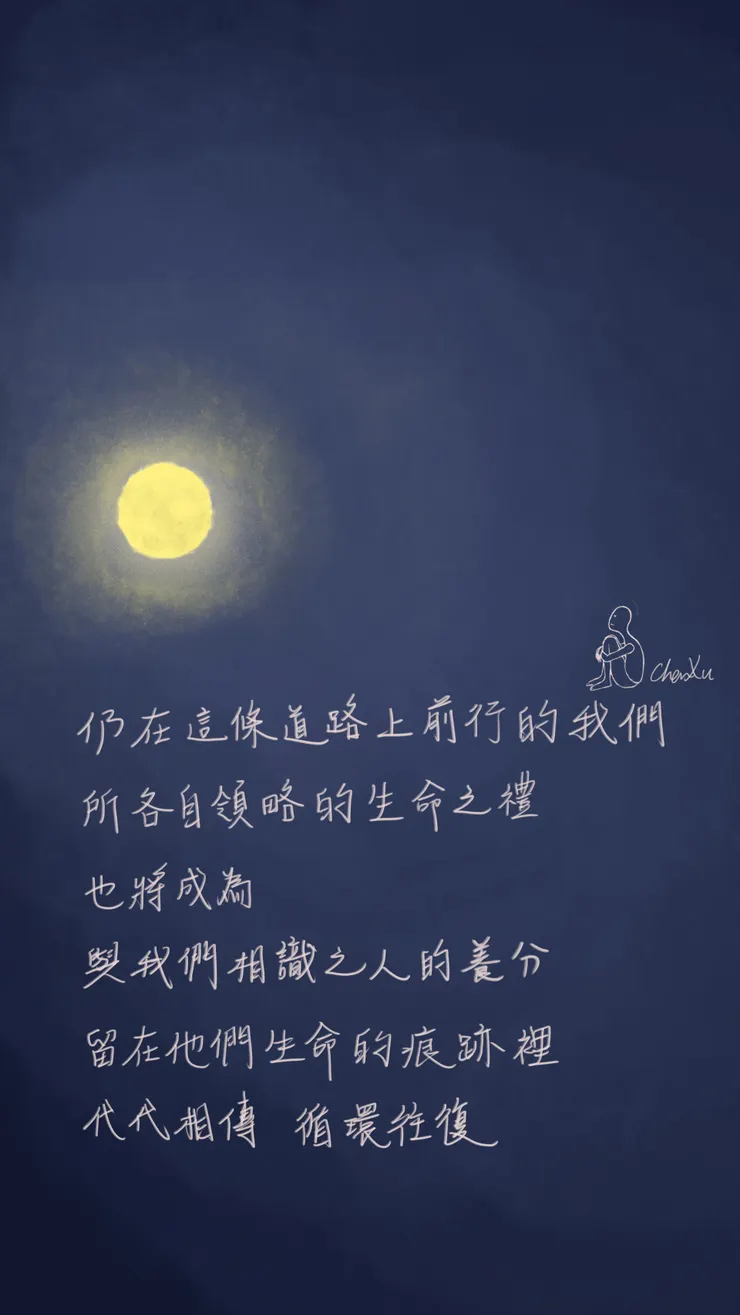 ChenXu
仍在這條道路上前行的我們
所各自領略的生命之禮
也將成為
與我們相識之人的養分
留在他們生命的痕跡裡
代代相傳 循環往復